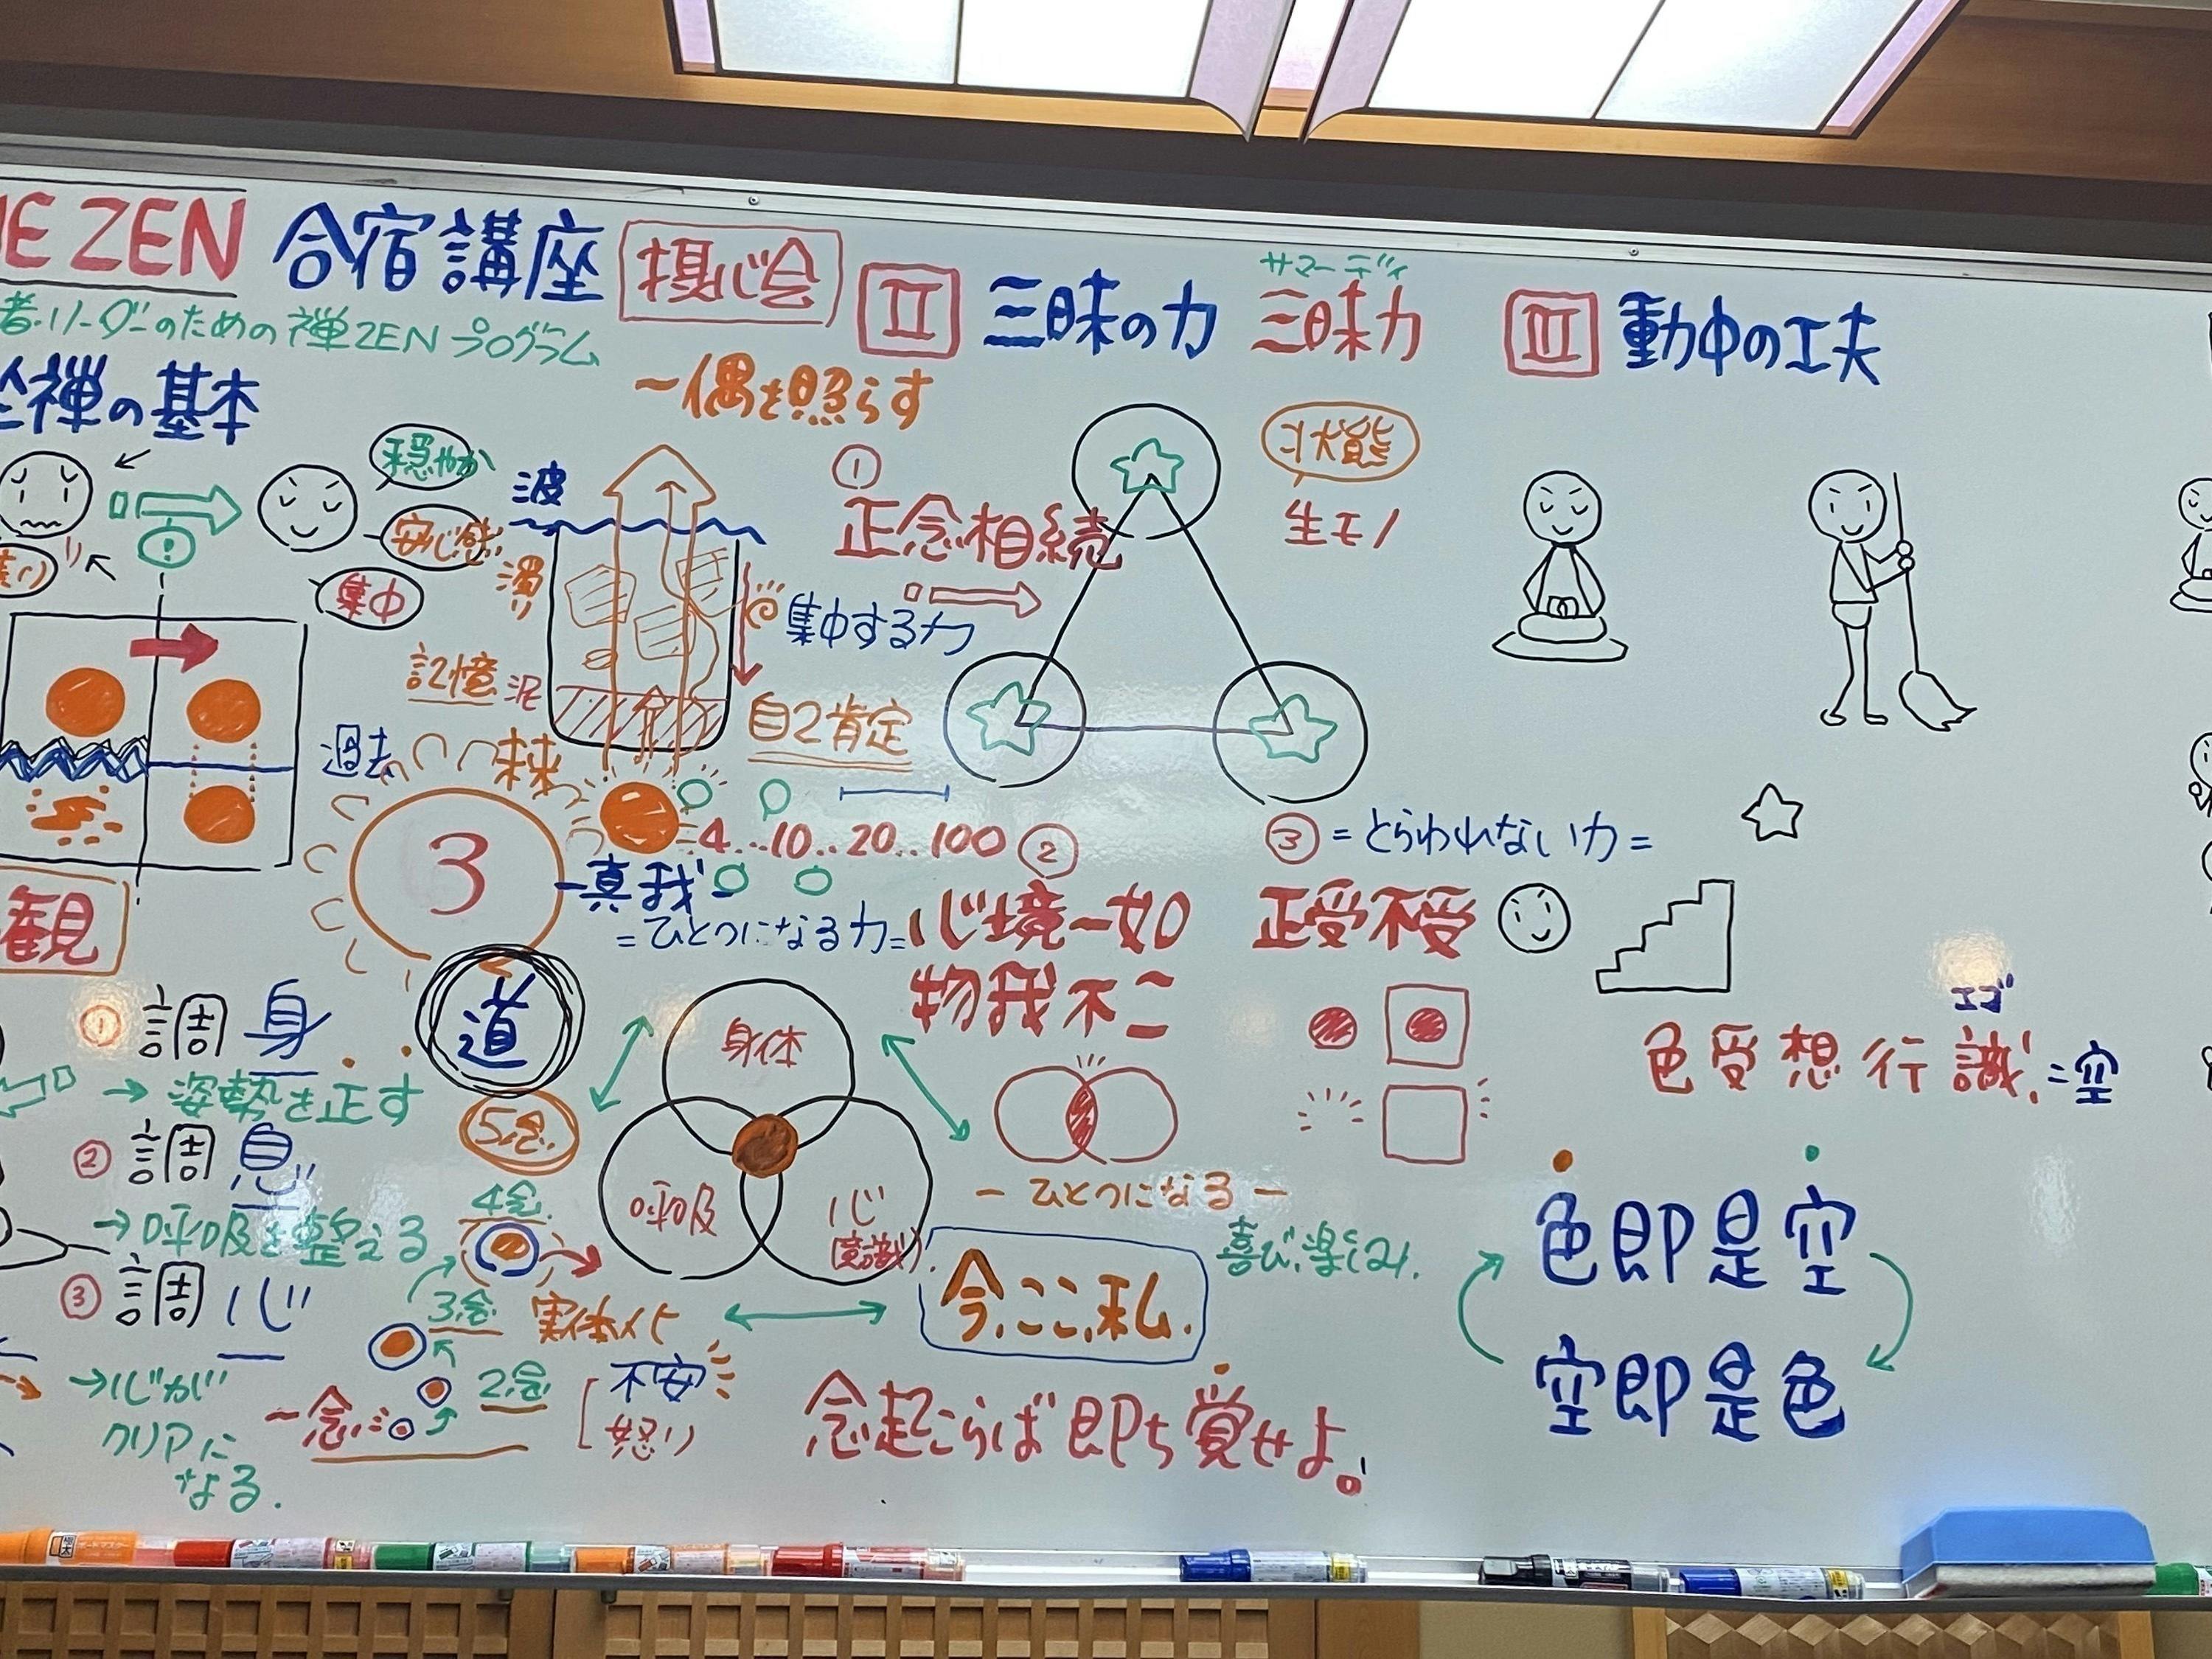 ZEN 合宿講座 摂心会
者・リーダーのための禅ZENプログラム
坐禅の基本
穏やか
安心感
集中
波
濁り
記憶 泥
過去
未来
観
一偶を照らす
集中する力
自己肯定
3
4...10..20..100
真我
=ひとつになる力=
道
① 調身
→ 姿勢を正す
② 調息
→呼吸を整える
③ 調心
→心が
クリアに
なる.
5念
4念
3念
2念
一念
実体化
不安
怒り
身体
呼吸
心
(意識)
Ⅱ 三昧の力
サマーディ
三昧力
①
正念相続
状態
生モノ
②
心境一如
物我不二
ーひとつになるー
今,ここ,私.
喜び、楽しみ.
③ =とらわれない力=
正受不受
念起こらば即ち覚せよ。
Ⅲ 動中の工夫
エゴ
色受想行識=空
色即是空
空即是色